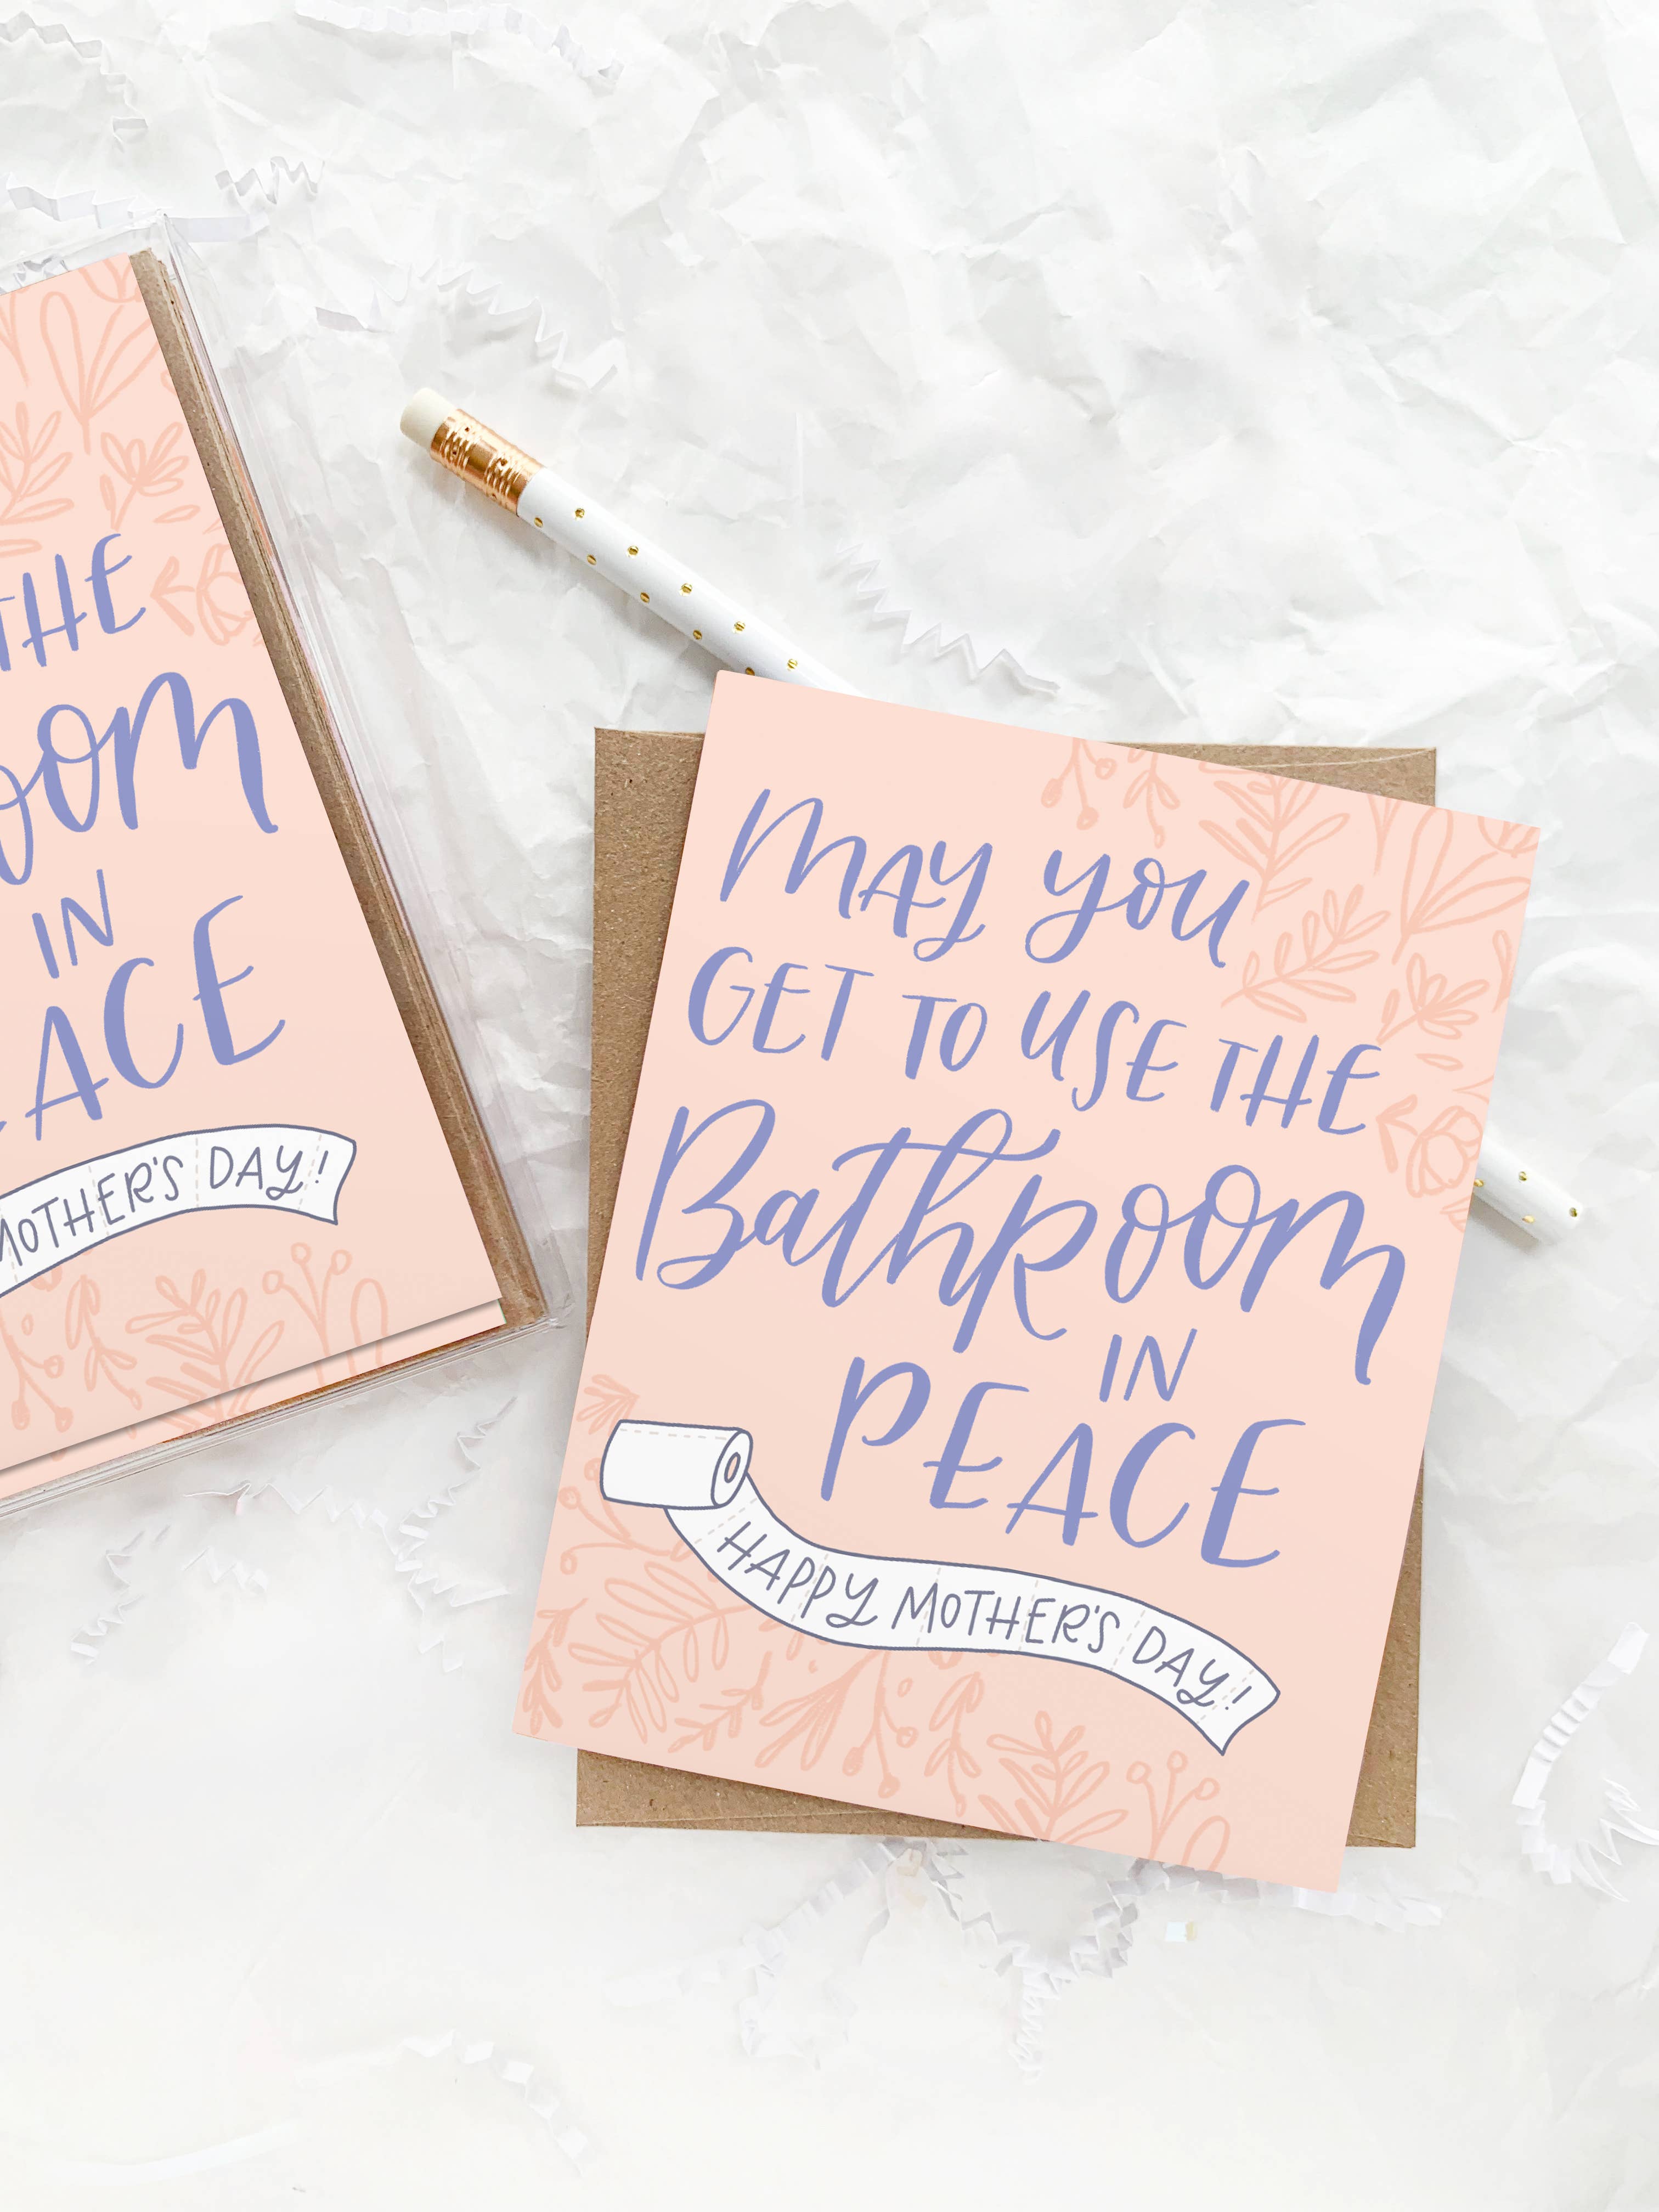 THE
OOM
IN
ACE
MOTHER'S DAY!
MAY YOU
GET TO USE THE
BathRoom
IN
PEACE
HAPPY MOTHER'S DAY!